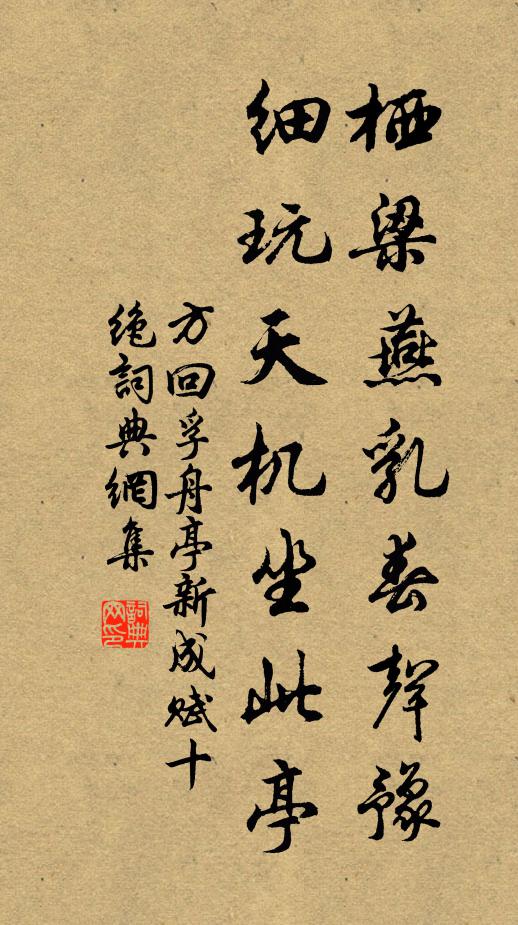 栖梁燕乳春聲豫
细玩天机坐此亭
方回孚舟亭新成赋十
绝詞典網集
詞典
网印